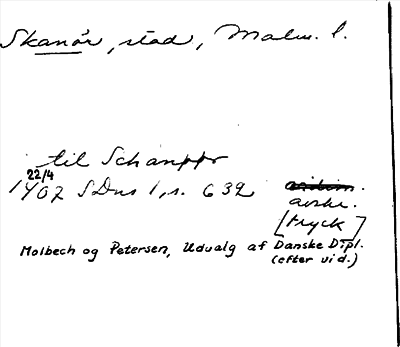 Skanör, stad, Malm. l.
til Schanppr
22/4
1407 SDns 1, s. 632 vidim.
avskr.
[tryck]
Molbech og Petersen, Udvalg af Danske Dipl.
(efter vid.)